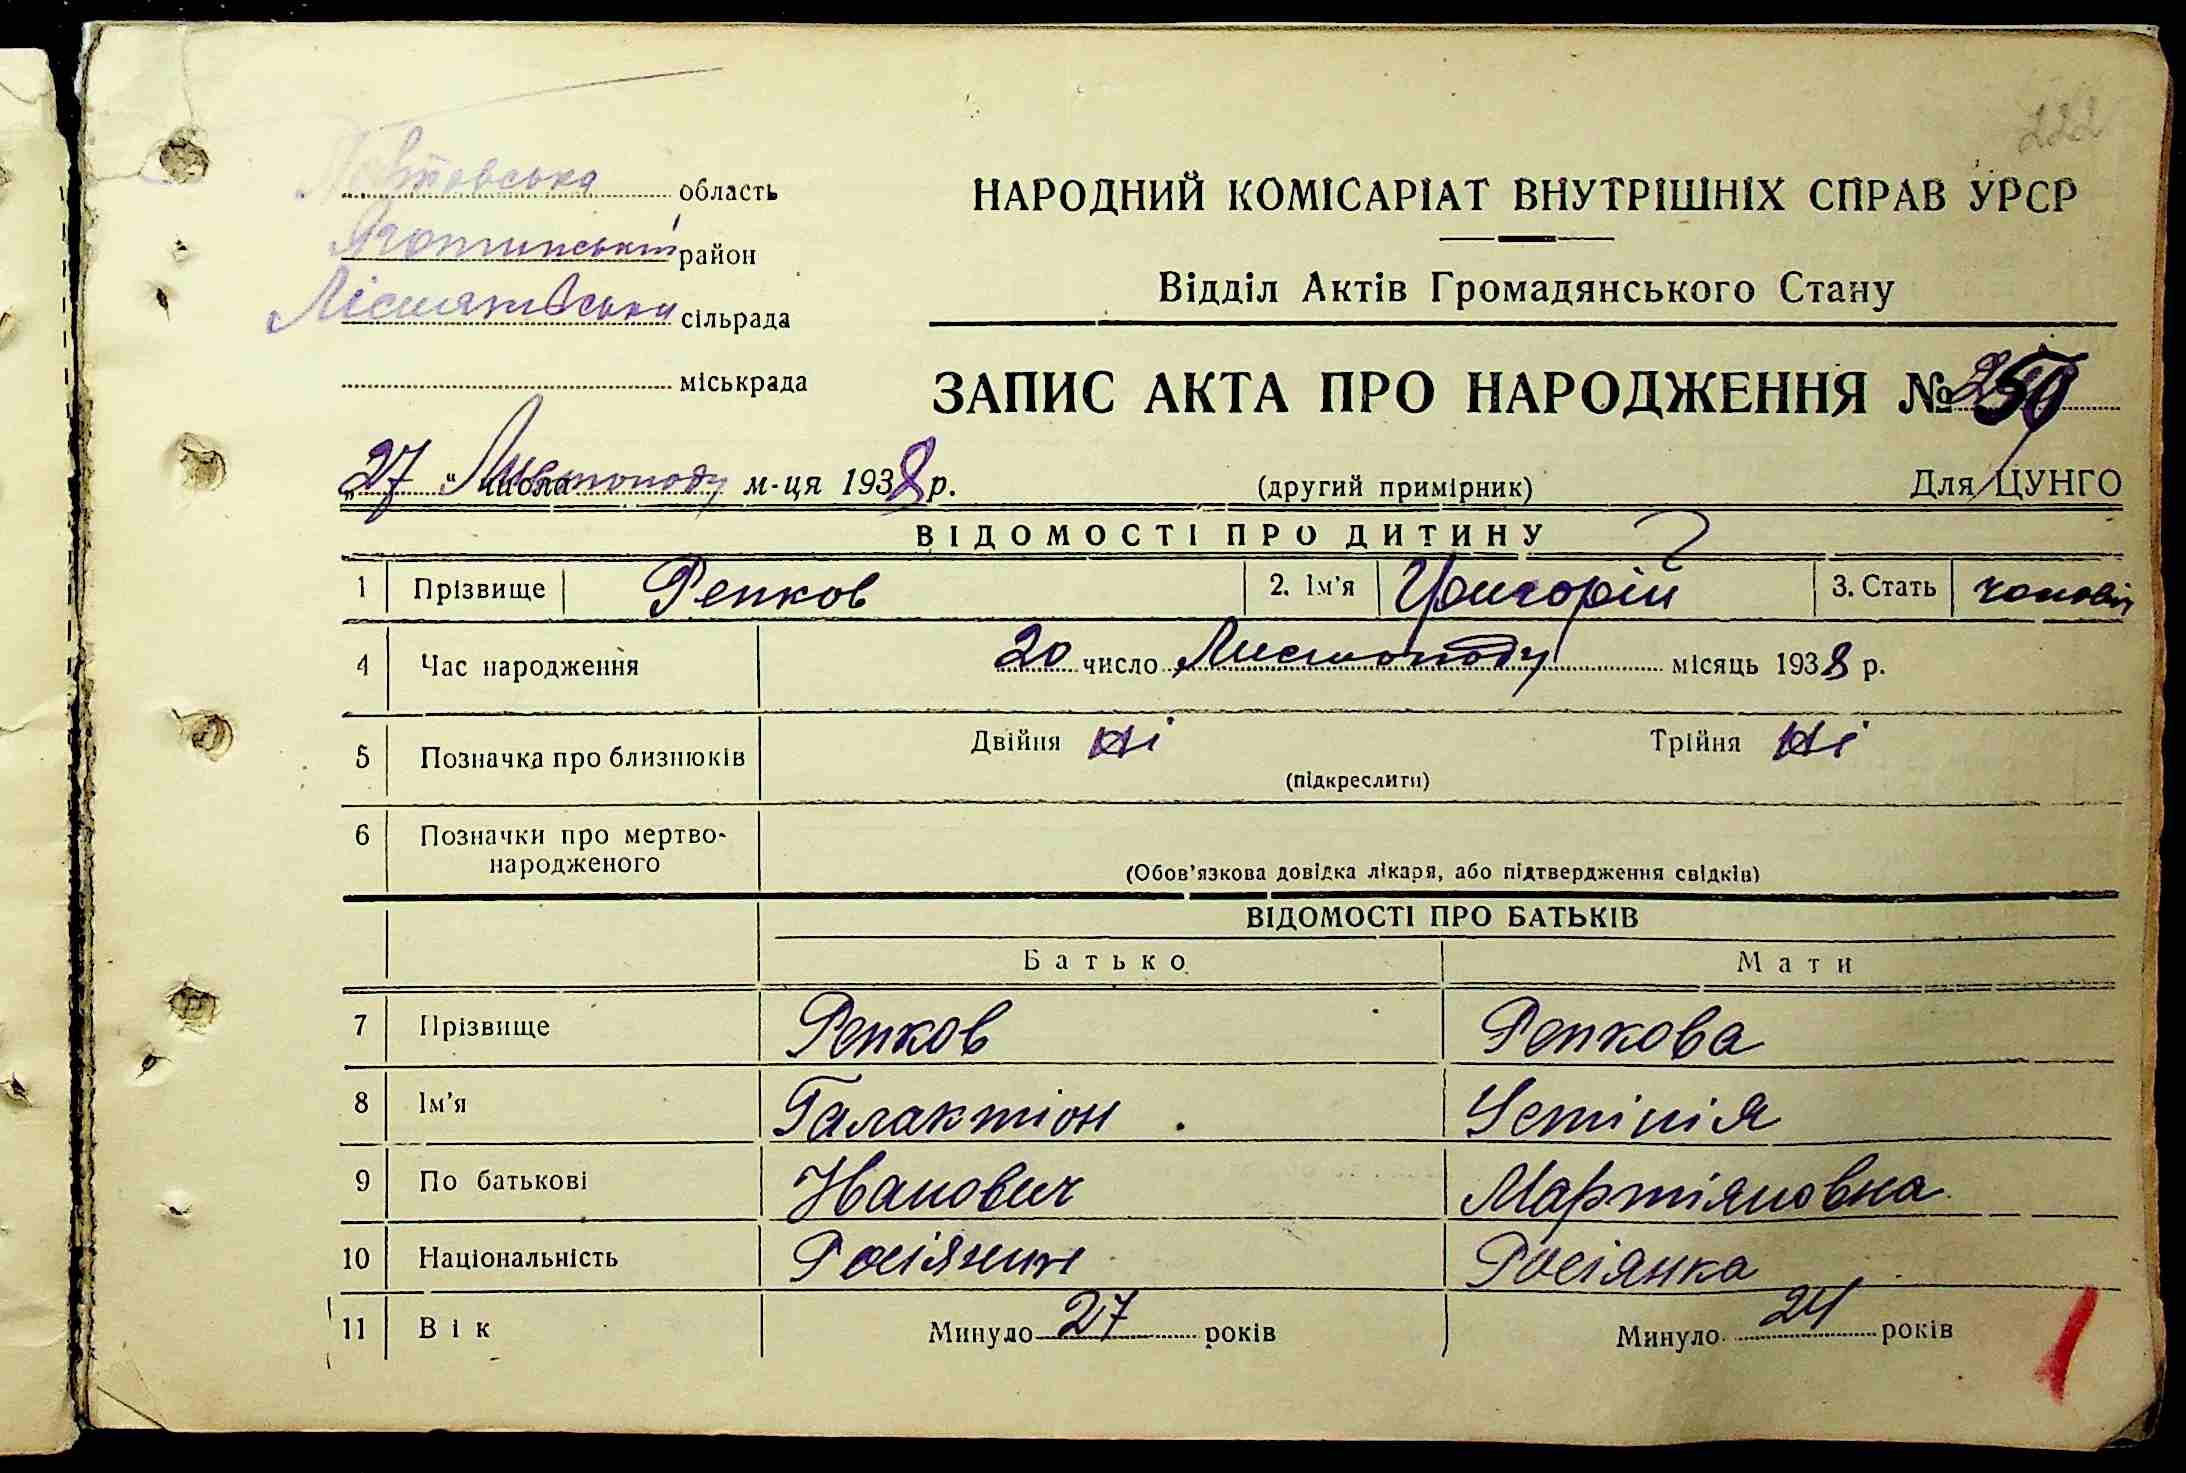 222
Полтавська область
Яготинський район
Лісняківська сільрада
міськрада
НАРОДНИЙ КОМІСАРІАТ ВНУТРІШНІХ СПРАВ УРСР
Відділ Актів Громадянського Стану
ЗАПИС АКТА ПРО НАРОДЖЕННЯ №
„27“ числа Листопаду м-ця 1938 р.
(другий примірник)
Для ЦУНГО
ВІДОМОСТІ ПРО ДИТИНУ
1 Прізвище Репков 2. Ім'я Григорій 3. Стать чоловіч
4 Час народження 20 число Листопаду місяць 1938 р.
5 Позначка про близнюків Двійня ні Трійня ні
(підкреслити)
6 Позначки про мертво-
народженого
(Обов'язкова довідка лікаря, або підтвердження свідків)
ВІДОМОСТІ ПРО БАТЬКІВ
Батько Мати
7 Прізвище Репков Репкова
8 Ім'я Галактіон Устінія
9 По батькові Иванович Мартіяновна
10 Національність Росіянин Росіянка
11 Вік Минуло 27 років Минуло 24 років